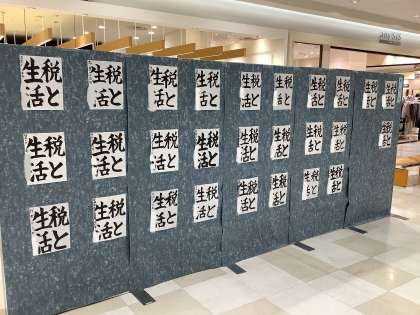 any SiS
税と
生活
税と
生活
税と
生活
税と
生活
税と
生活
税と
生活
税と
生活
税と
生活
税と
生活
税と
生活
税と
生活
税と
生活
税と
生活
税と
生活
税と
生活
税と
生活
税と
生活
税と
生活
税と
生活
税と
生活
税と
生活
税と
生活
税と
生活
税と
生活
税と
生活
税と
生活
税と
生活